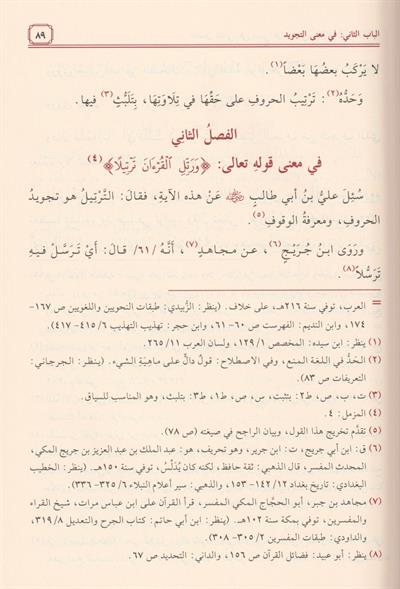 الباب الثاني: في معنى التجويد
٨٩
لا يَرْكَبُ بعضُها بَعْضاً(١).
وَحَدُّه(٢): تَرْتِيبُ الحروفِ على حَقِّها في تِلَاوَتِها، بِتَلَبُّثٍ(٣) فيها.
الفصلُ الثاني
في معنى قولِهِ تعالى: ﴿وَرَتِّلِ ٱلْقُرْءَانَ تَرْتِيلًا﴾(٤)
سُئِلَ عليُّ بنُ أبي طالبٍ ﷺ عَنْ هذه الآيةِ، فقالَ: التَّرْتِيلُ هو تجويدُ
الحروفِ، ومعرفةُ الوقوفِ(٥).
وروَى ابنُ جُرَيْجٍ(٦)، عن مجاهدٍ(٧)، أنَّهُ /٦١/ قالَ: أيْ تَرَسَّلْ فيهِ
تَرَسُّلاً(٨).
= العرب، توفي سنة ٢١٦هـ، على خلاف. (ينظر: الزُّبيدي: طبقات النحويين واللغويين ص ١٦٧-
١٧٤، وابن النديم: الفهرست ص ٦٠-٦١، وابن حجر: تهذيب التهذيب ٦/ ٤١٥-٤١٧).
(١) ينظر: ابن سيده: المخصص ١/ ١٢٩، ولسان العرب ١١/ ٢٦٥.
(٢) الحَدُّ في اللغة المنع، وفي الاصطلاح: قولٌ دالٌّ على ماهِيَّةِ الشيءِ. (ينظر: الجرجاني:
التعريفات ص ٨٣).
(٣) ت، ب، ص، ط٢: بتثبت، س، ص، ط١، ط٣: بتلبث، وهو المناسب للسياق.
(٤) المزمل: ٤.
(٥) تقدَّم تخريج هذا القول، وبيان الراجح في صيغته (ص ٧٨).
(٦) ق: ابن أبي جريج، ت: ابن جرير، وهو تحريف، هو: عبد الملك بن عبد العزيز بن جريج المكي،
المحدث المفسر، قال الذهبي: ثقة حافظ، لكنه كان يُدَلِّسُ، توفي سنة ١٥٠هـ. (ينظر: الخطيب
البغدادي: تاريخ بغداد ١٢/ ١٤٢-١٥٣، والذهبي: سير أعلام النبلاء ٦/ ٣٢٥-٣٣٦).
(٧) مجاهد بن جبر، أبو الحجَّاج المكي المفسر، قرأ القرآن على ابن عباس مرات، شيخ القراء
والمفسرين، توفي بمكة سنة ١٠٢هـ. (ينظر: ابن أبي حاتم: كتاب الجرح والتعديل ٨/ ٣١٩،
والداودي: طبقات المفسرين ٢/ ٣٠٥-٣٠٨).
(٨) ينظر: أبو عبيد: فضائل القرآن ص ١٥٦، والداني: التحديد ص ٦٧.